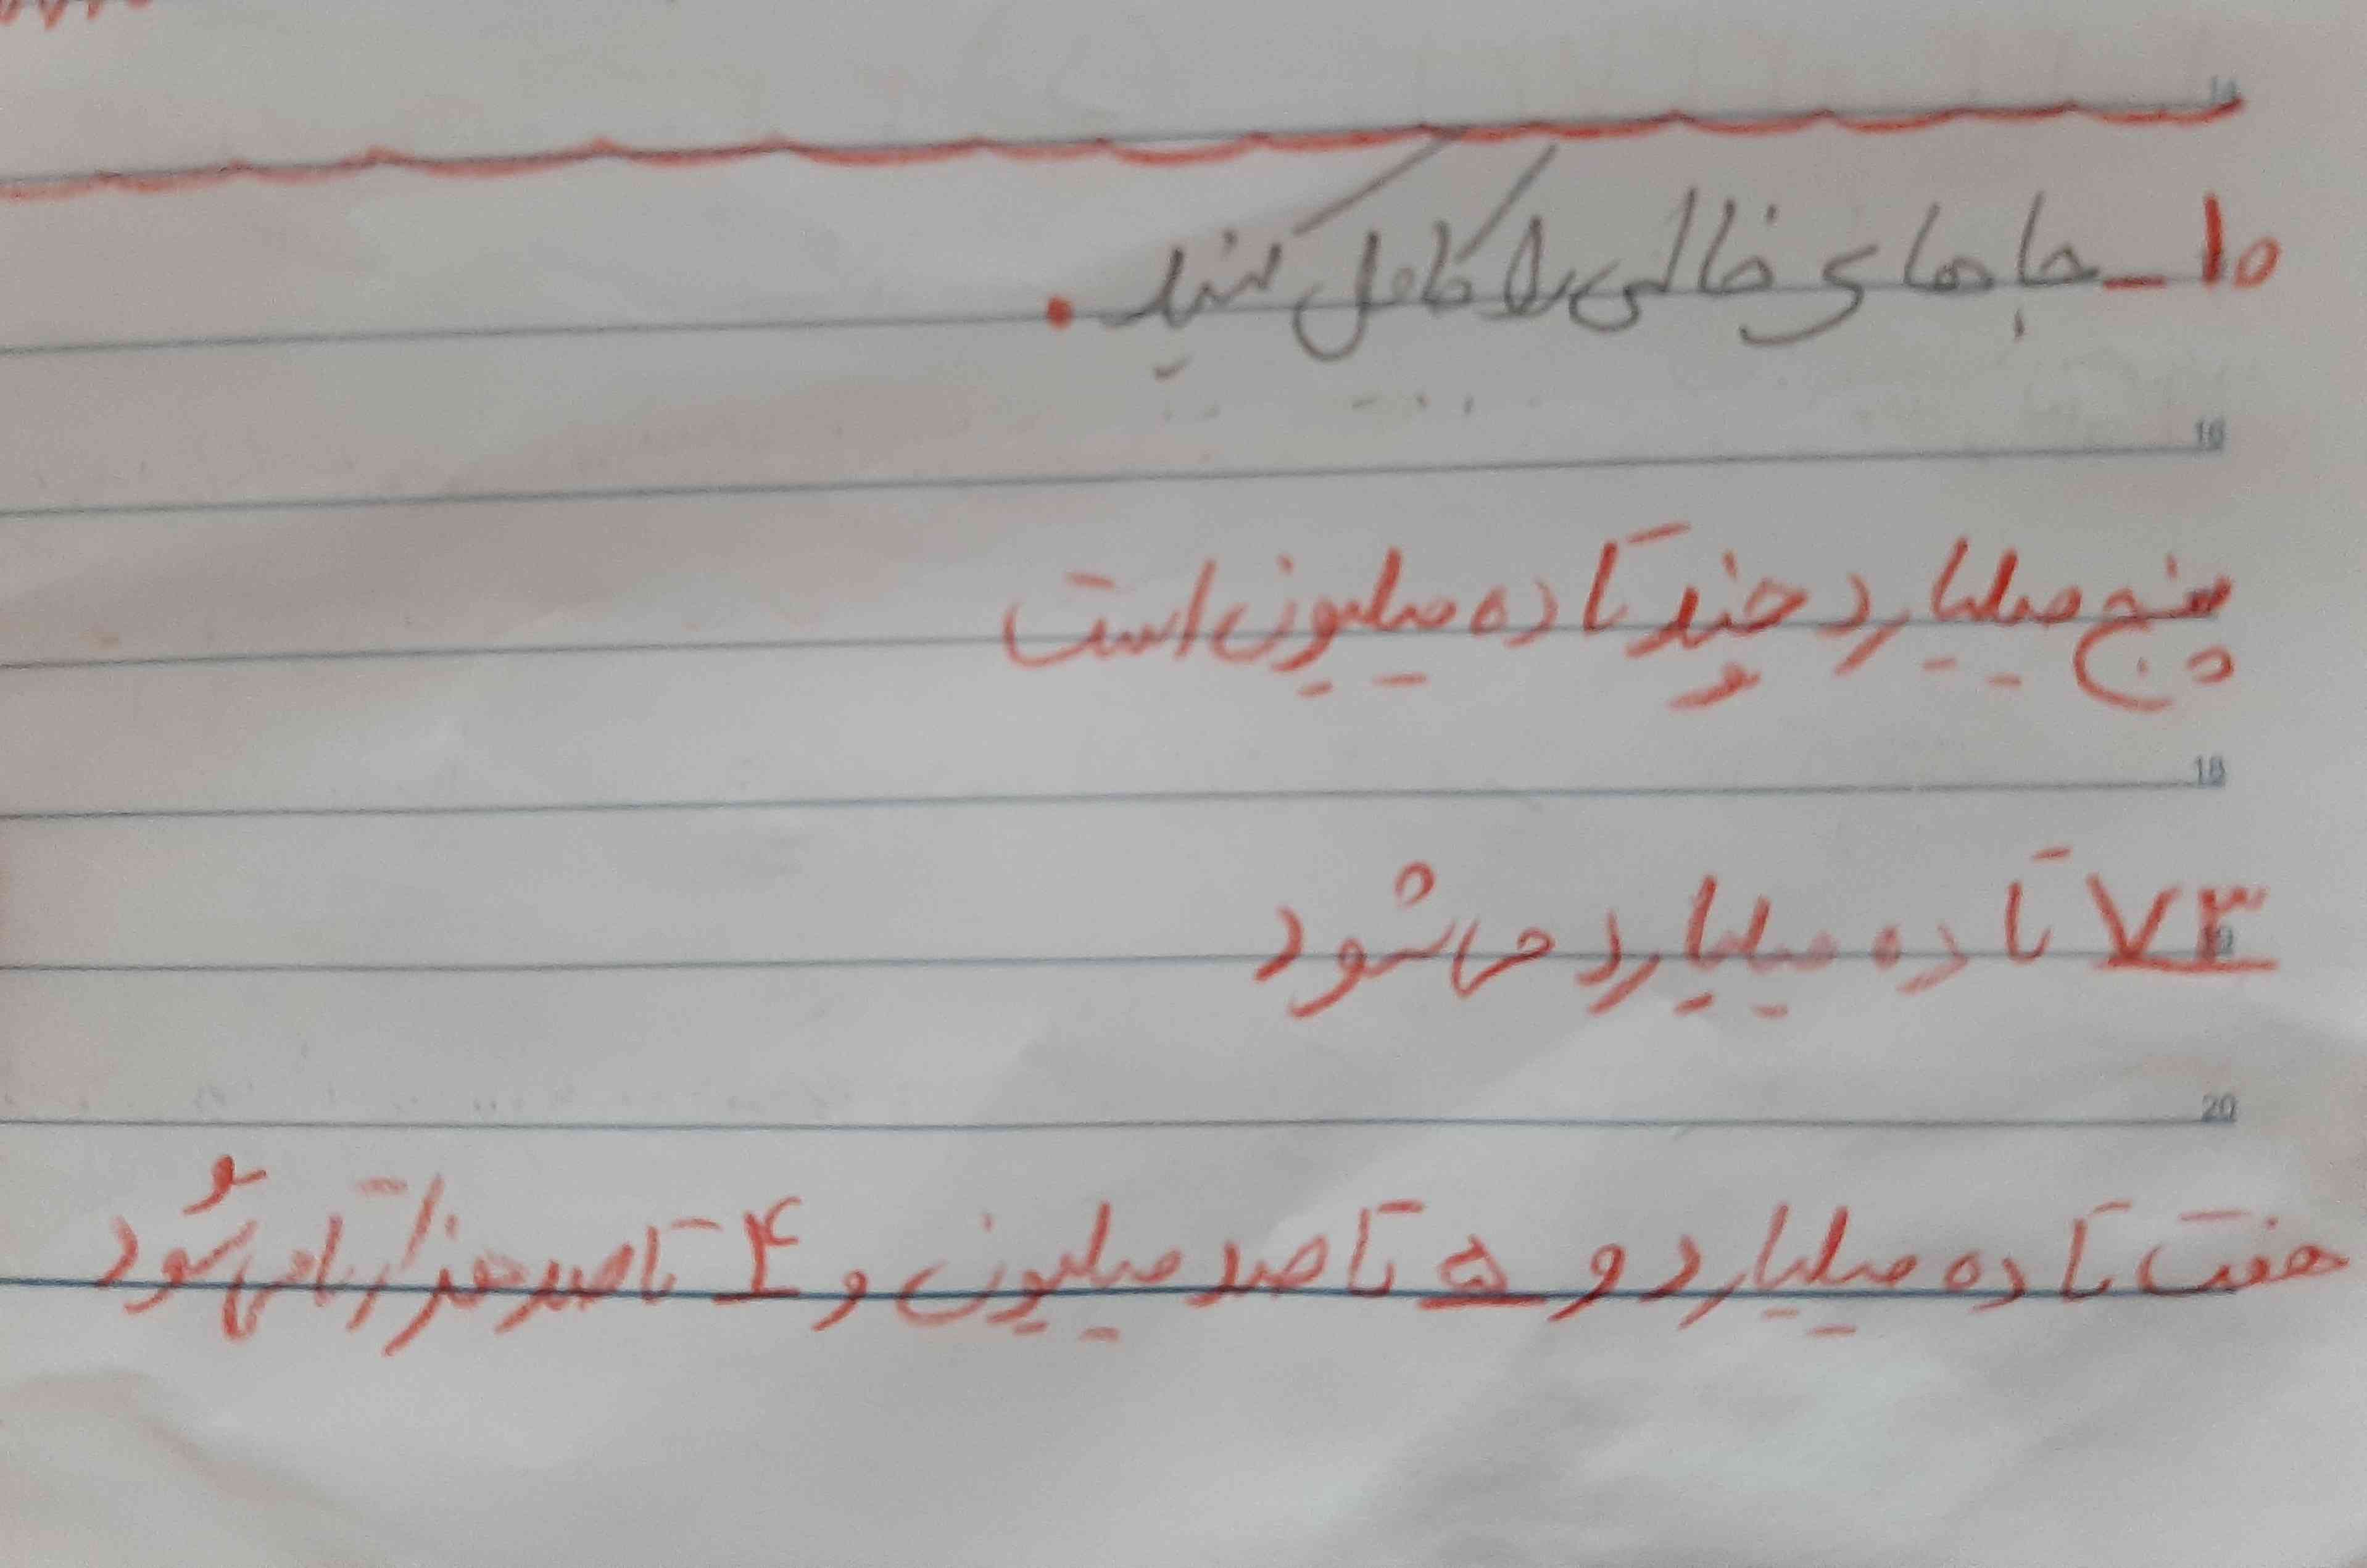 ۱۰_ جاهای خالی را کامل کنید.
16
پنج میلیارد چند تا ده میلیون است
18
۷۳ تا ده میلیارد می شود
20
هفت تا ده میلیارد و ۵ تا صد میلیون و ۴ تا صد هزارتا می شود